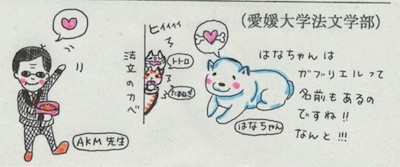 (愛媛大学法文学部)
はなちゃんは
ガブリエルって
名前もあるの
ですね!!
なんと!!!
はなちゃん
ヒィィィィ
トトロ
たまねぎ
法文のカベ
AKM先生